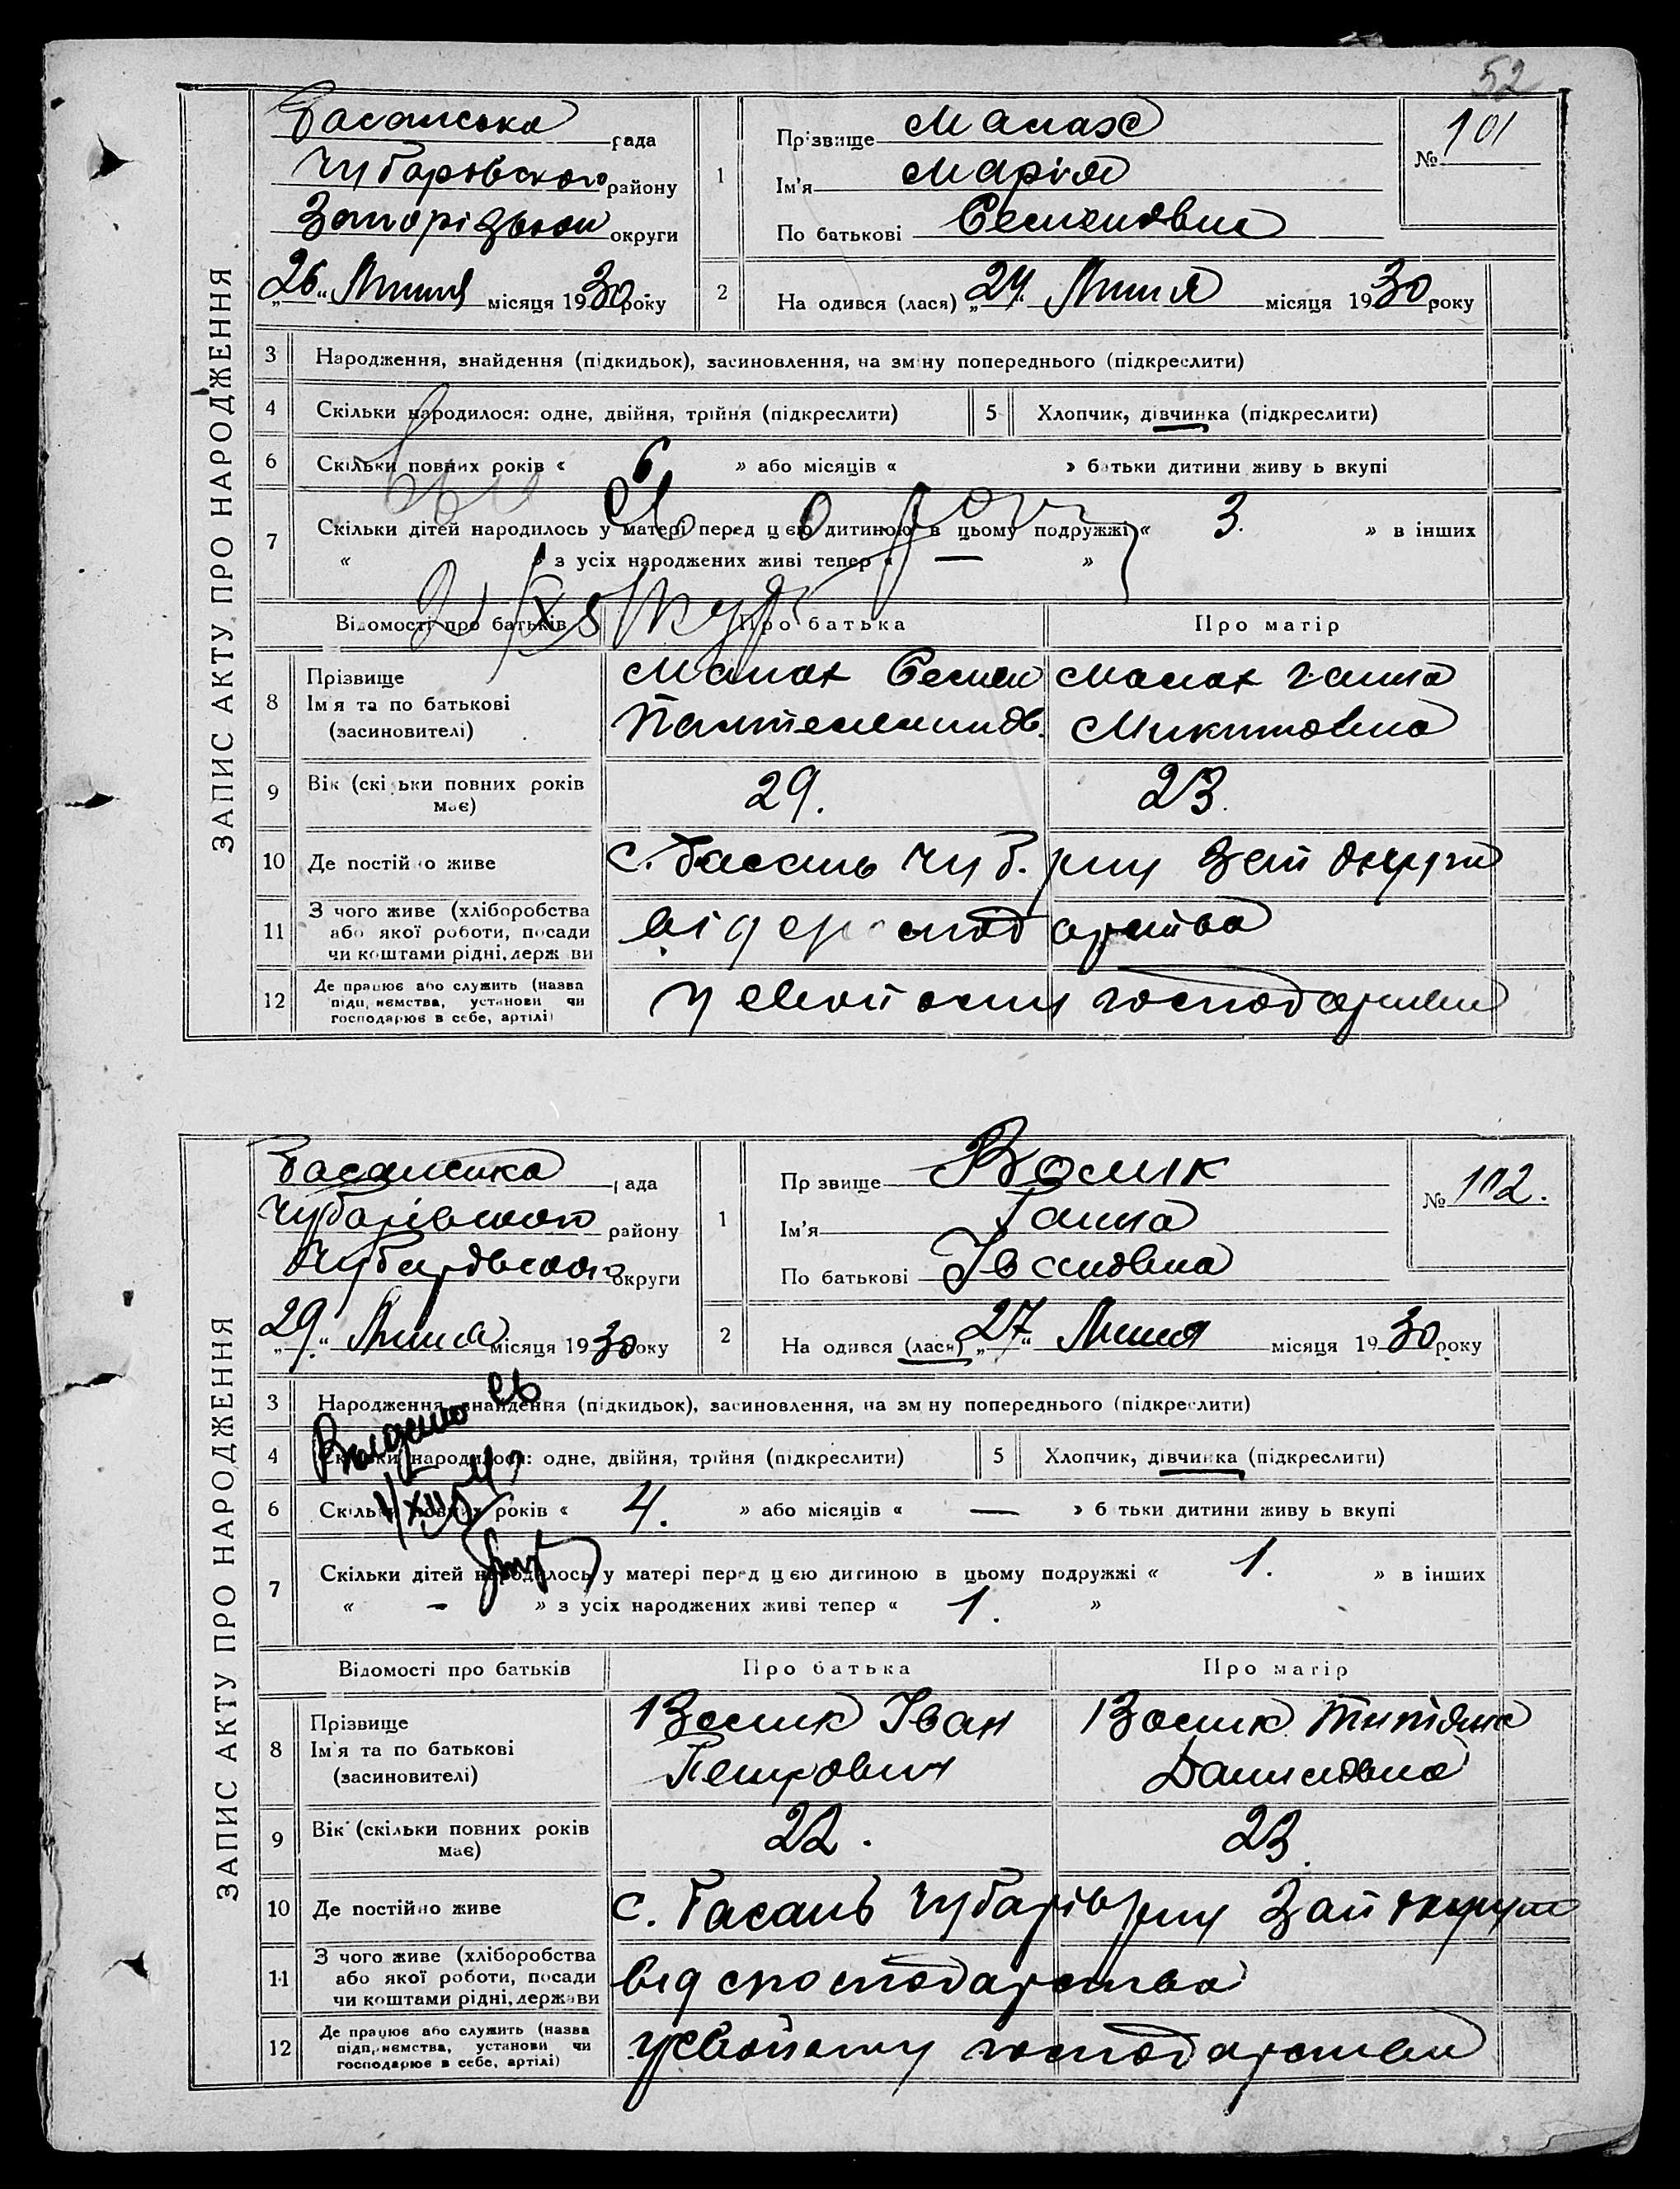 52
ЗАПИС АКТУ ПРО НАРОДЖЕННЯ
Басанська рада
Чубаровского району
Запорізької округи
„26“ Липня місяця 1930 року
1
Прізвище Малах
Ім'я Марія
По батькові Семеновна
№ 101
2
На одився (лася) „24“ Липня місяця 1930 року
3 Народження, знайдення (підкидьок), засиновлення, на зміну попереднього (підкреслити)
4 Скільки народилося: одне, двійня, трійня (підкреслити)
5 Хлопчик, дівчинка (підкреслити)
6 Скільки повних років « 6 » або місяців « » батьки дитини живу ь вкупі
7 Скільки дітей народилось у матері перед цією дитиною в цьому подружжі « 3. » в інших
« » з усіх народжених живі тепер « — »
Відомості про батьків Про батька Про матір
8 Прізвище
Ім'я та по батькові
(засиновителі)
Малах Семен
Малах Ганна
Микитовна
9 Вік (скільки повних років
має)
29. 23.
10 Де постійно живе с. Басань Чуб. р-ну Зап округи
11 З чого живе (хліборобства
або якої роботи, посади
чи коштами рідні, держави
від господарства
12 Де працює або служить (назва
підприємства, установи чи
господарює в себе, артілі)
у своїому господарстві
ЗАПИС АКТУ ПРО НАРОДЖЕННЯ
Басанська рада
Чубарівского району
округи
„29.“ Липня місяця 1930 року
1
Прізвище Волик
Ім'я Ганна
По батькові Івановна
№ 102.
2
На одився (лася) „27“ Липня місяця 1930 року
3 Народження, знайдення (підкидьок), засиновлення, на зміну попереднього (підкреслити)
4 Скільки народилося: одне, двійня, трійня (підкреслити)
5 Хлопчик, дівчинка (підкреслити)
6 Скільки повних років « 4. » або місяців « — » батьки дитини живу ь вкупі
7 Скільки дітей народилось у матері перед цією дитиною в цьому подружжі « 1. » в інших
« — » з усіх народжених живі тепер « 1. »
Відомості про батьків Про батька Про матір
8 Прізвище
Ім'я та по батькові
(засиновителі)
Волик Іван
Петрович
Волик Титяна
Даниловна
9 Вік (скільки повних років
має)
22. 23.
10 Де постійно живе с. Басань Чубарів р-ну Зап округи
11 З чого живе (хліборобства
або якої роботи, посади
чи коштами рідні, держави
від господарства
12 Де працює або служить (назва
підприємства, установи чи
господарює в себе, артілі)
у своїому господарстві